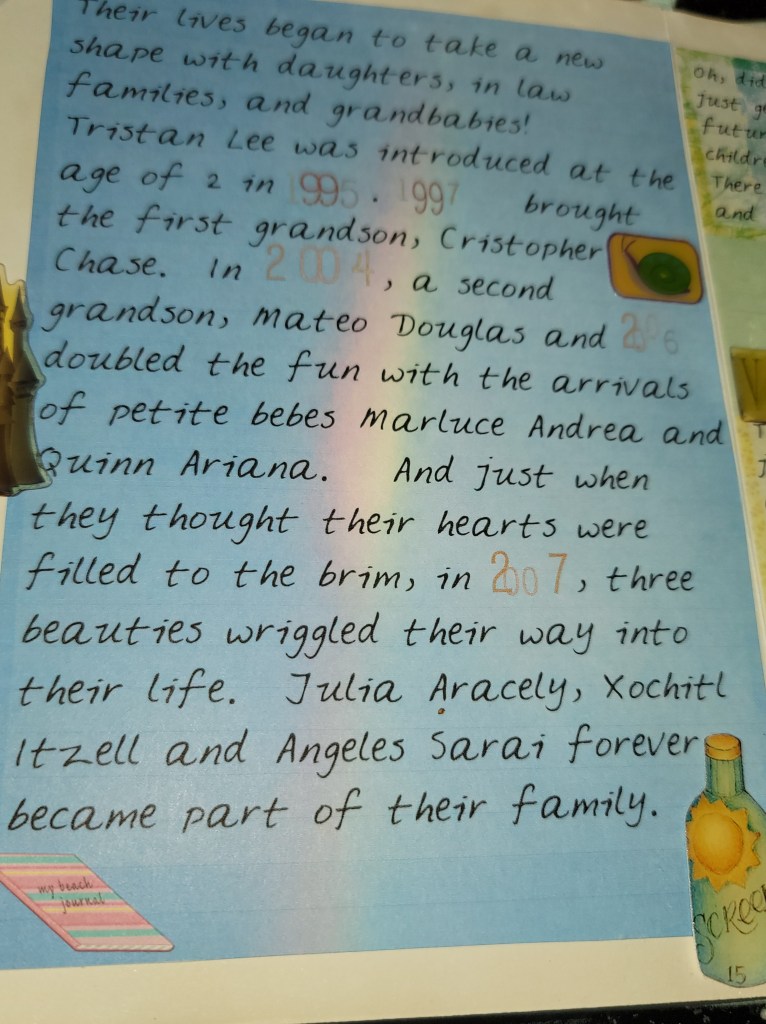 Their lives began to take a new
shape with daughters, in law
families, and grandbabies!
Tristan Lee was introduced at the
age of 2 in 1995. 1997 brought
the first grandson, Cristopher
Chase. In 2004, a second
grandson, Mateo Douglas and 2006
doubled the fun with the arrivals
of petite bebes Marluce Andrea and
Quinn Ariana. And just when
they thought their hearts were
filled to the brim, in 2007, three
beauties wriggled their way into
their life. Julia Aracely, Xochitl
Itzell and Angeles Sarai forever
became part of their family.
my beach
journal
15
Oh, did
just
childre
There
and